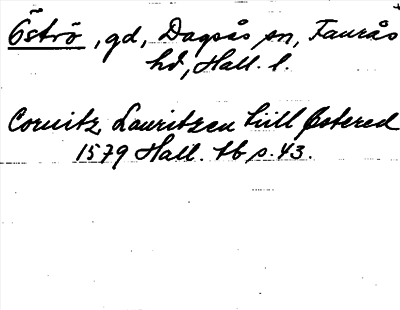 Öströ, gd, Dagsås sn, Faurås
hd, Hall. l.
Coruitz Lauritzen tiill Østered
1579 Hall. tb s. 43.